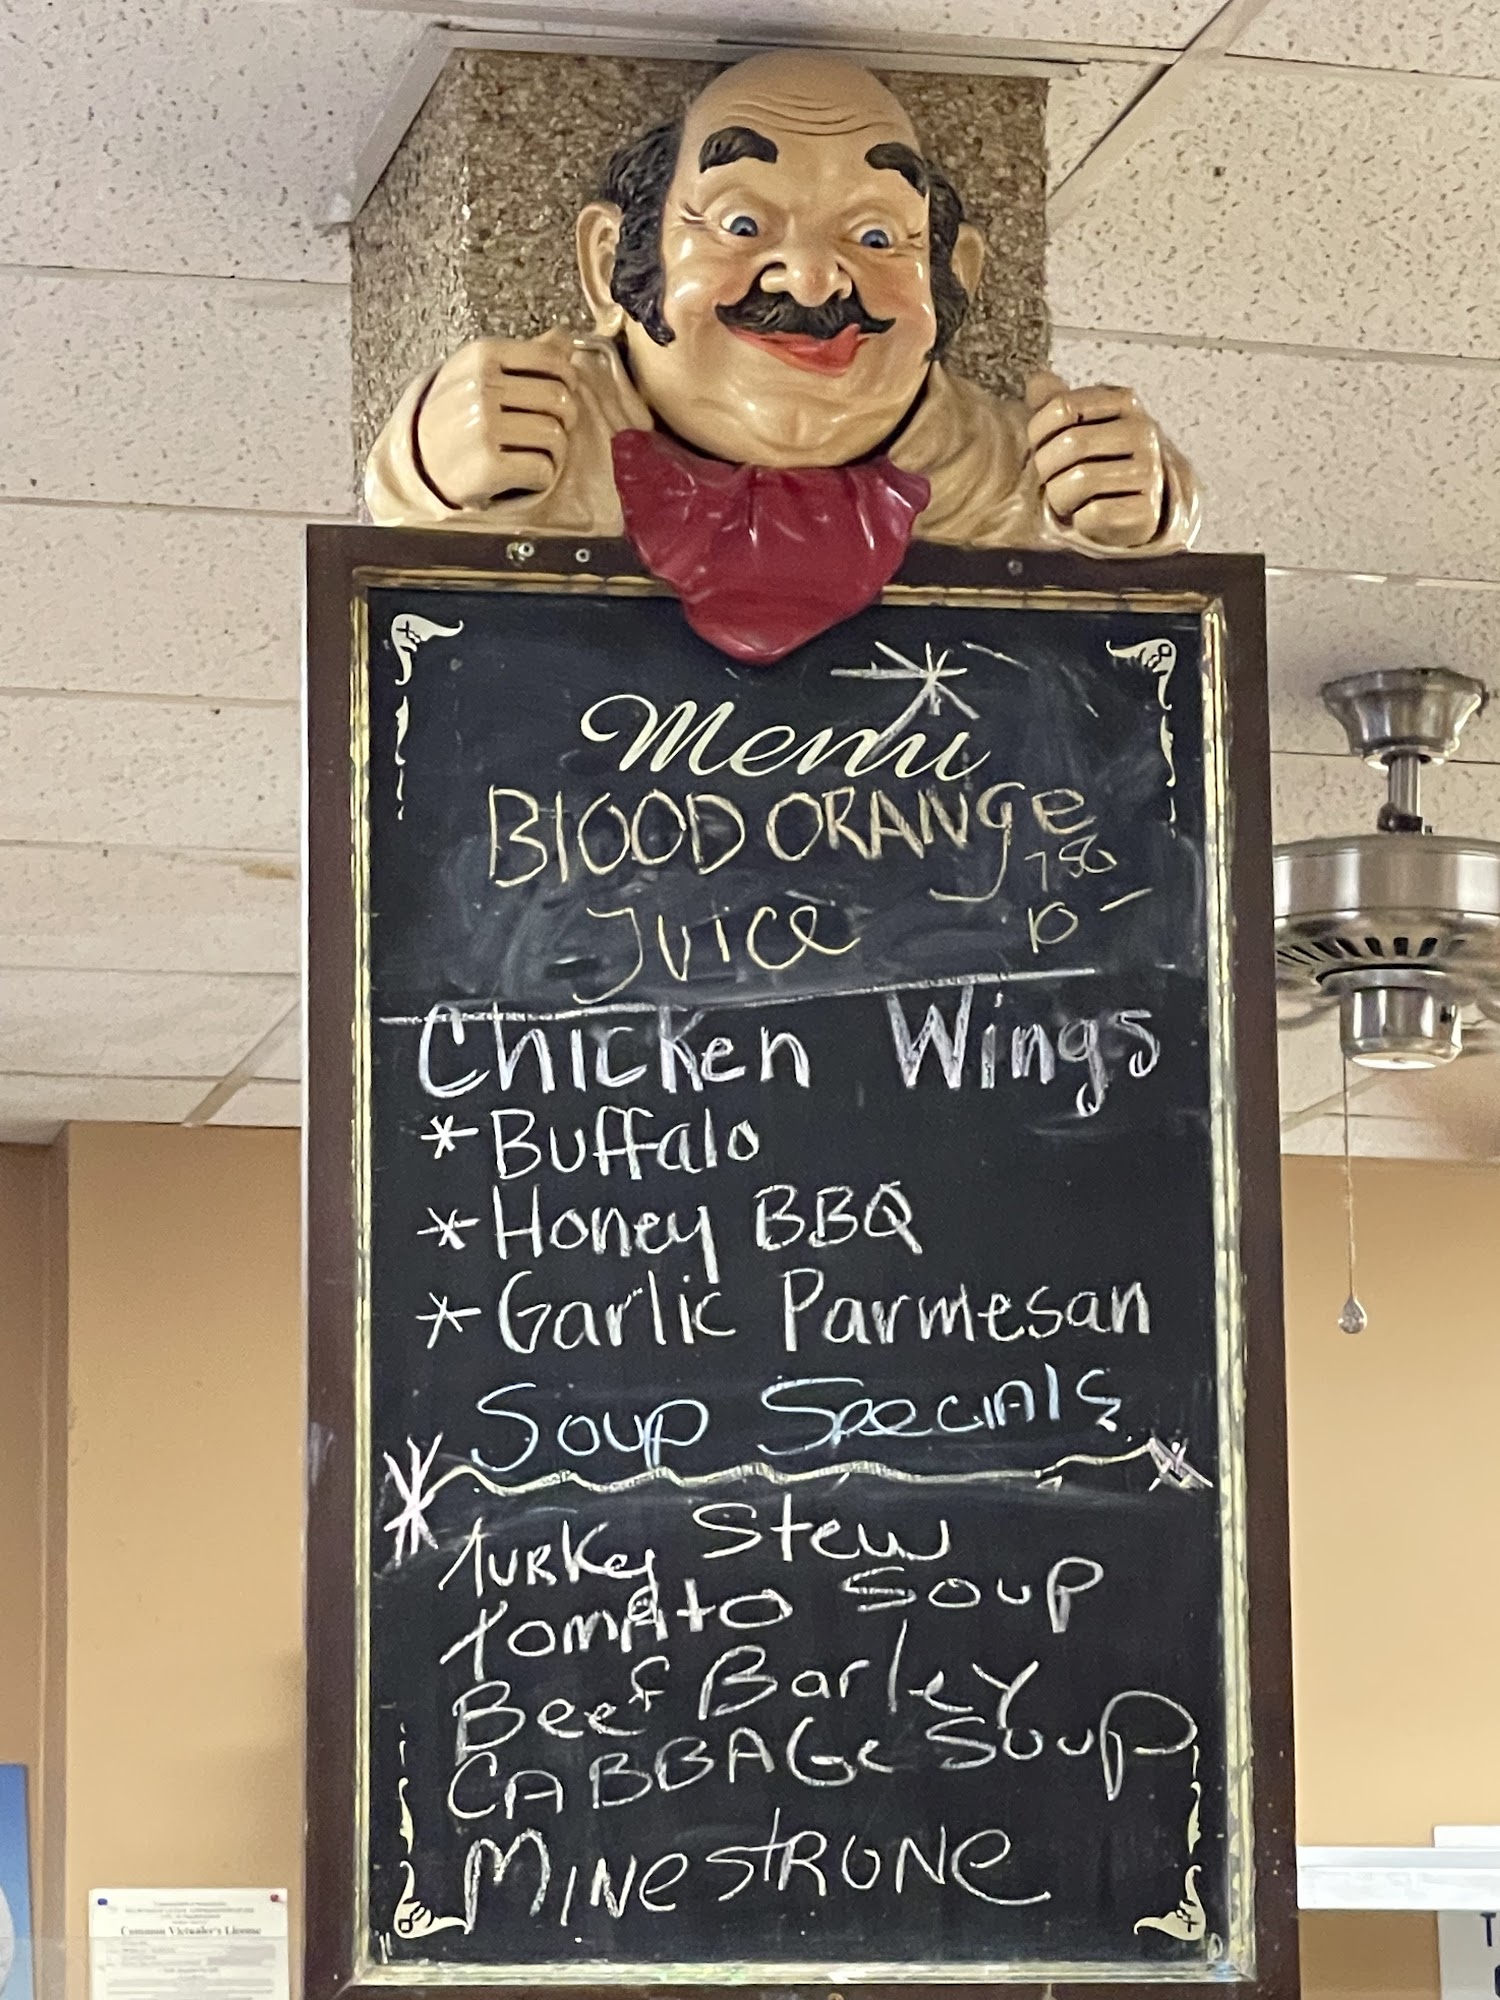 Menu
BlOOD ORANge
7 50
JUICe
10 —
Chicken Wings
* Buffalo
* Honey BBQ
* Garlic Parmesan
Soup SpeciAls
TURKey Stew
tomAto Soup
Beef Barley
CABBAGe Soup
MINestRONe
Common Victualer's License